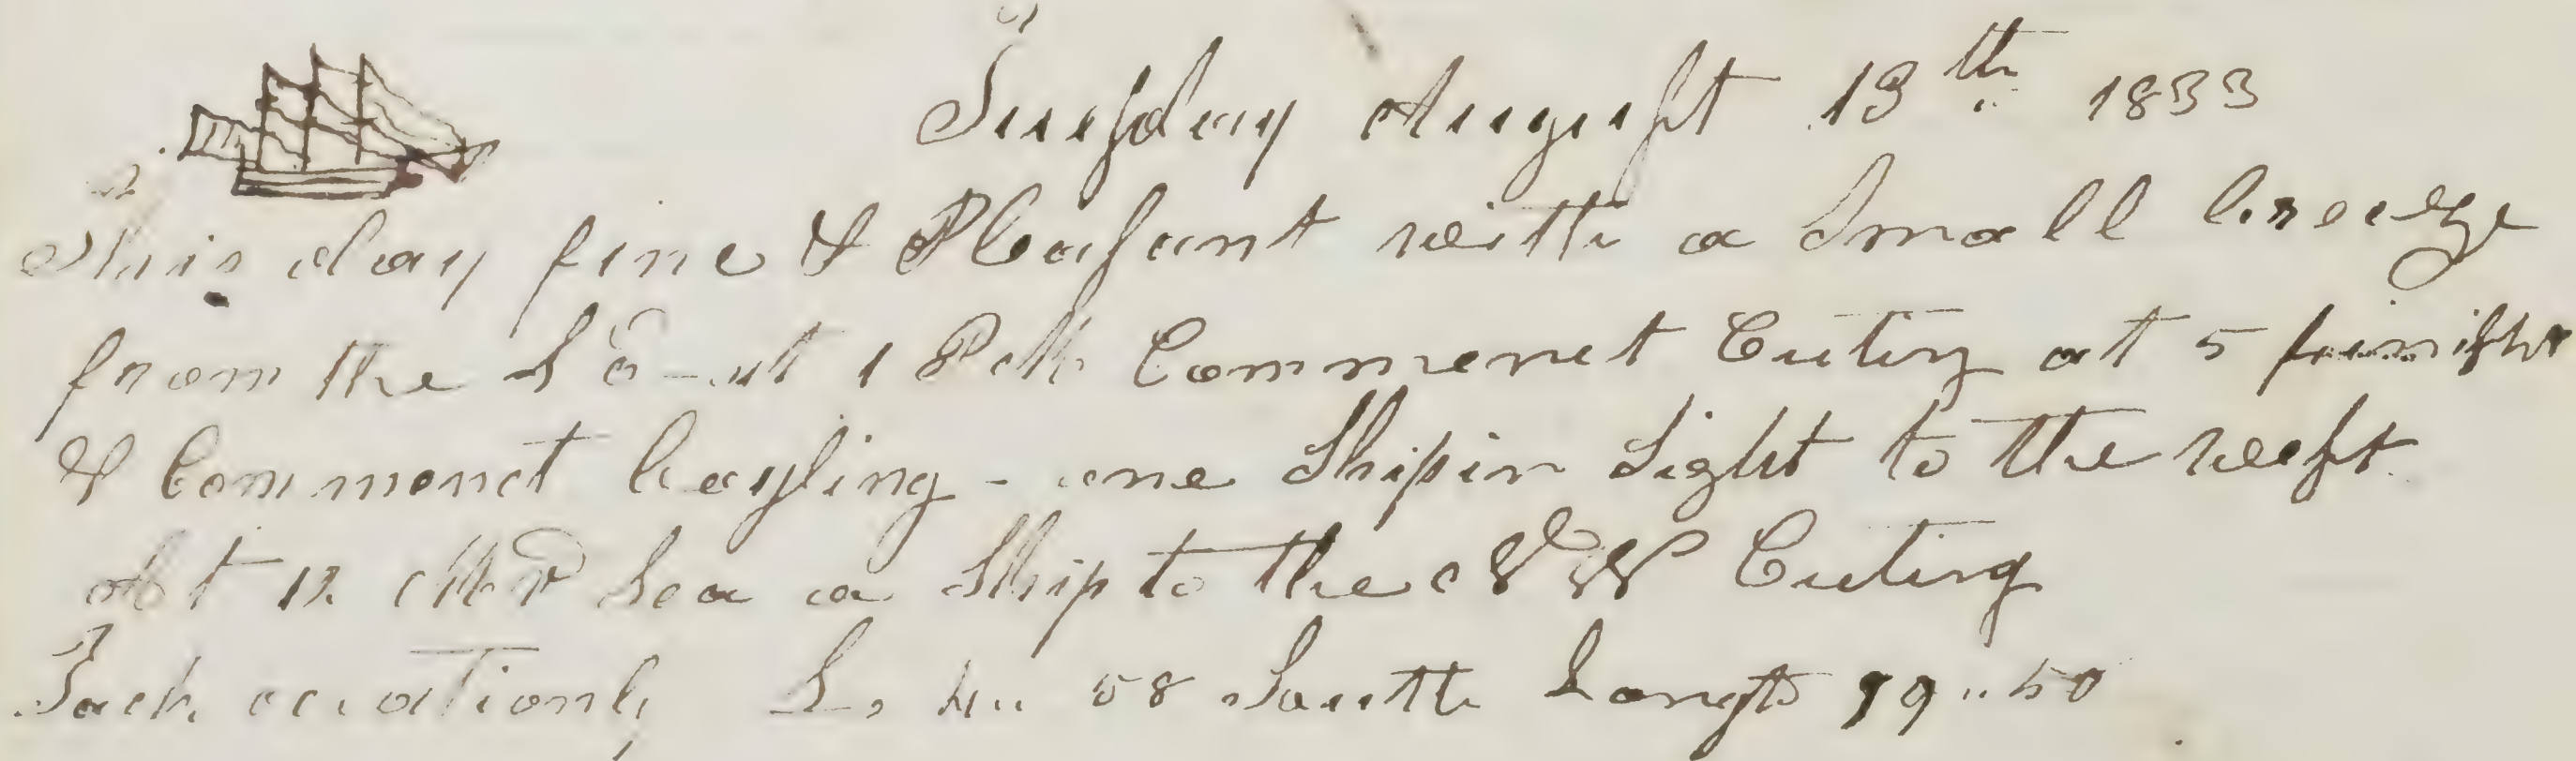 Tuesday August 13th 1833
This day fine & Pleasant with a Small breeze
from the S E - at 1 P M Commenct Cuting at 5 finisht
& Commenct boyling - one Ship in Sight to the west
At 12 M P Sea a Ship to the N W Cuting
Tack ocationly L. 4.. 58 South Longt 99..50